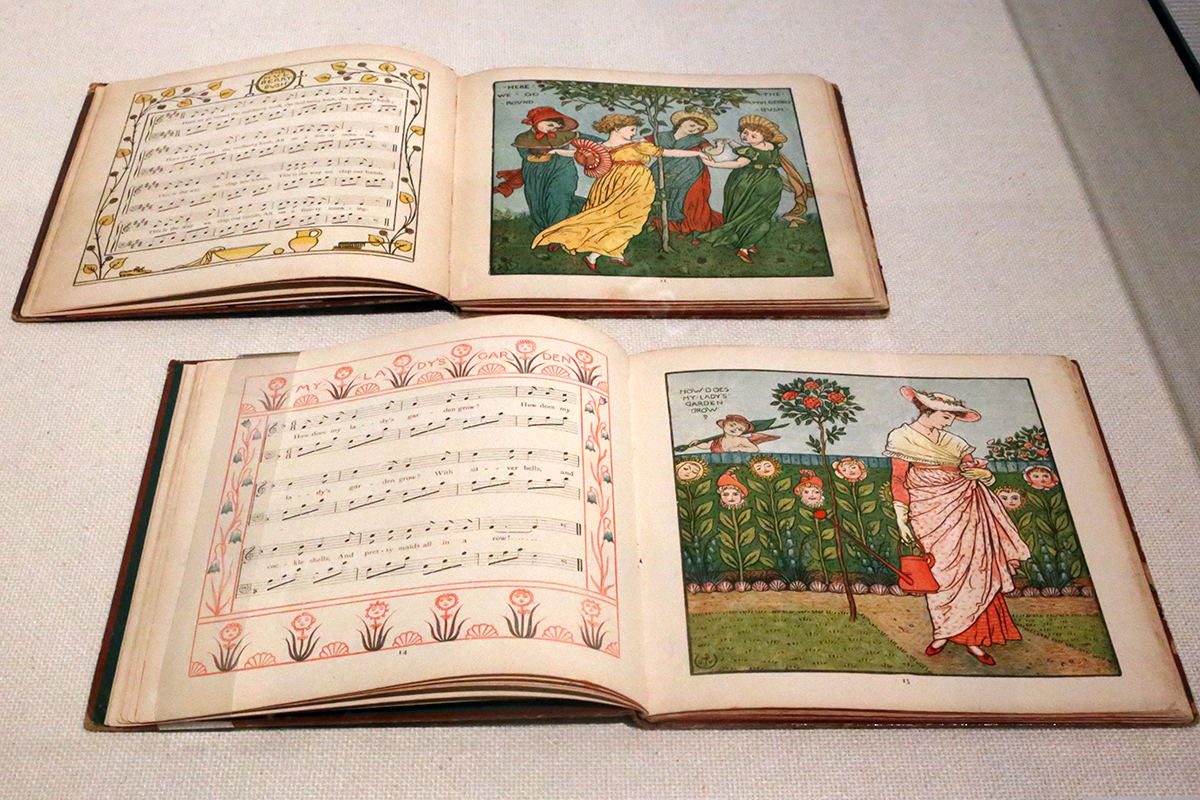 MUL
BERRY
BUSH
This is the way we clap our hands,
HERE
WE GO
ROUND
THE
MULBERRY
BUSH
21
MY LADY'S GARDEN
How does my la - dy's gar - den grow? How does my
la - dy's gar - den grow? With sil - ver bells, and
coc - kle shells, And pret-ty maids all in a row!
14
HOW DOES
MY LADY'S
GARDEN
GROW
?
15